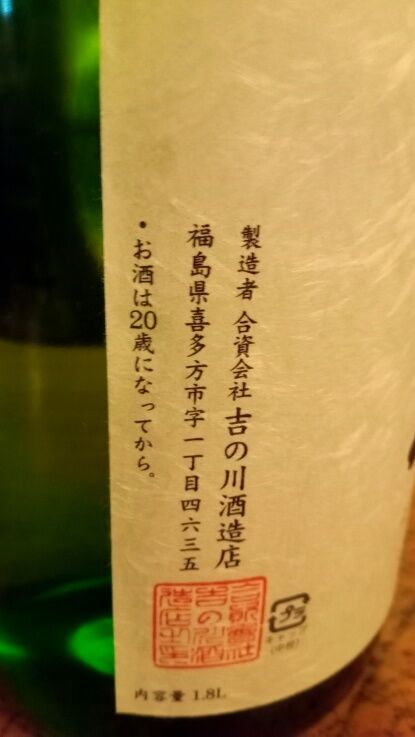 製造者 合資会社 吉の川酒造店
福島県喜多方市字一丁目四六三五
・お酒は20歳になってから。
プラ
キャップ
(中栓)
内容量 1.8L